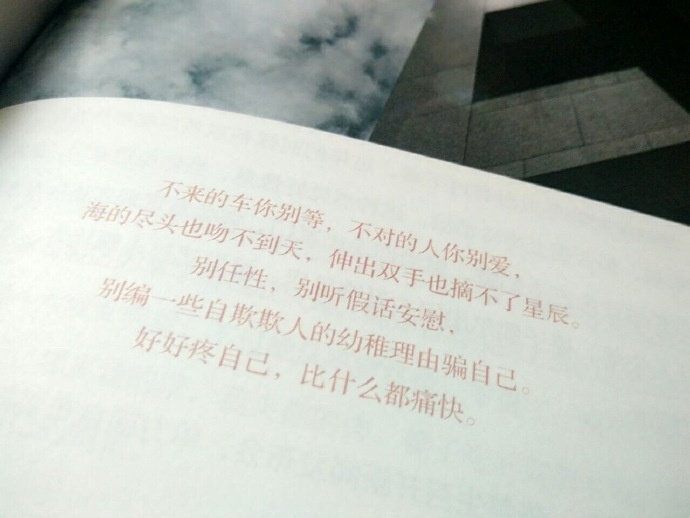 不来的车你别等，不对的人你别爱，
海的尽头也吻不到天，伸出双手也摘不了星辰。
别任性，别听假话安慰，
别编一些自欺欺人的幼稚理由骗自己。
好好疼自己，比什么都痛快。